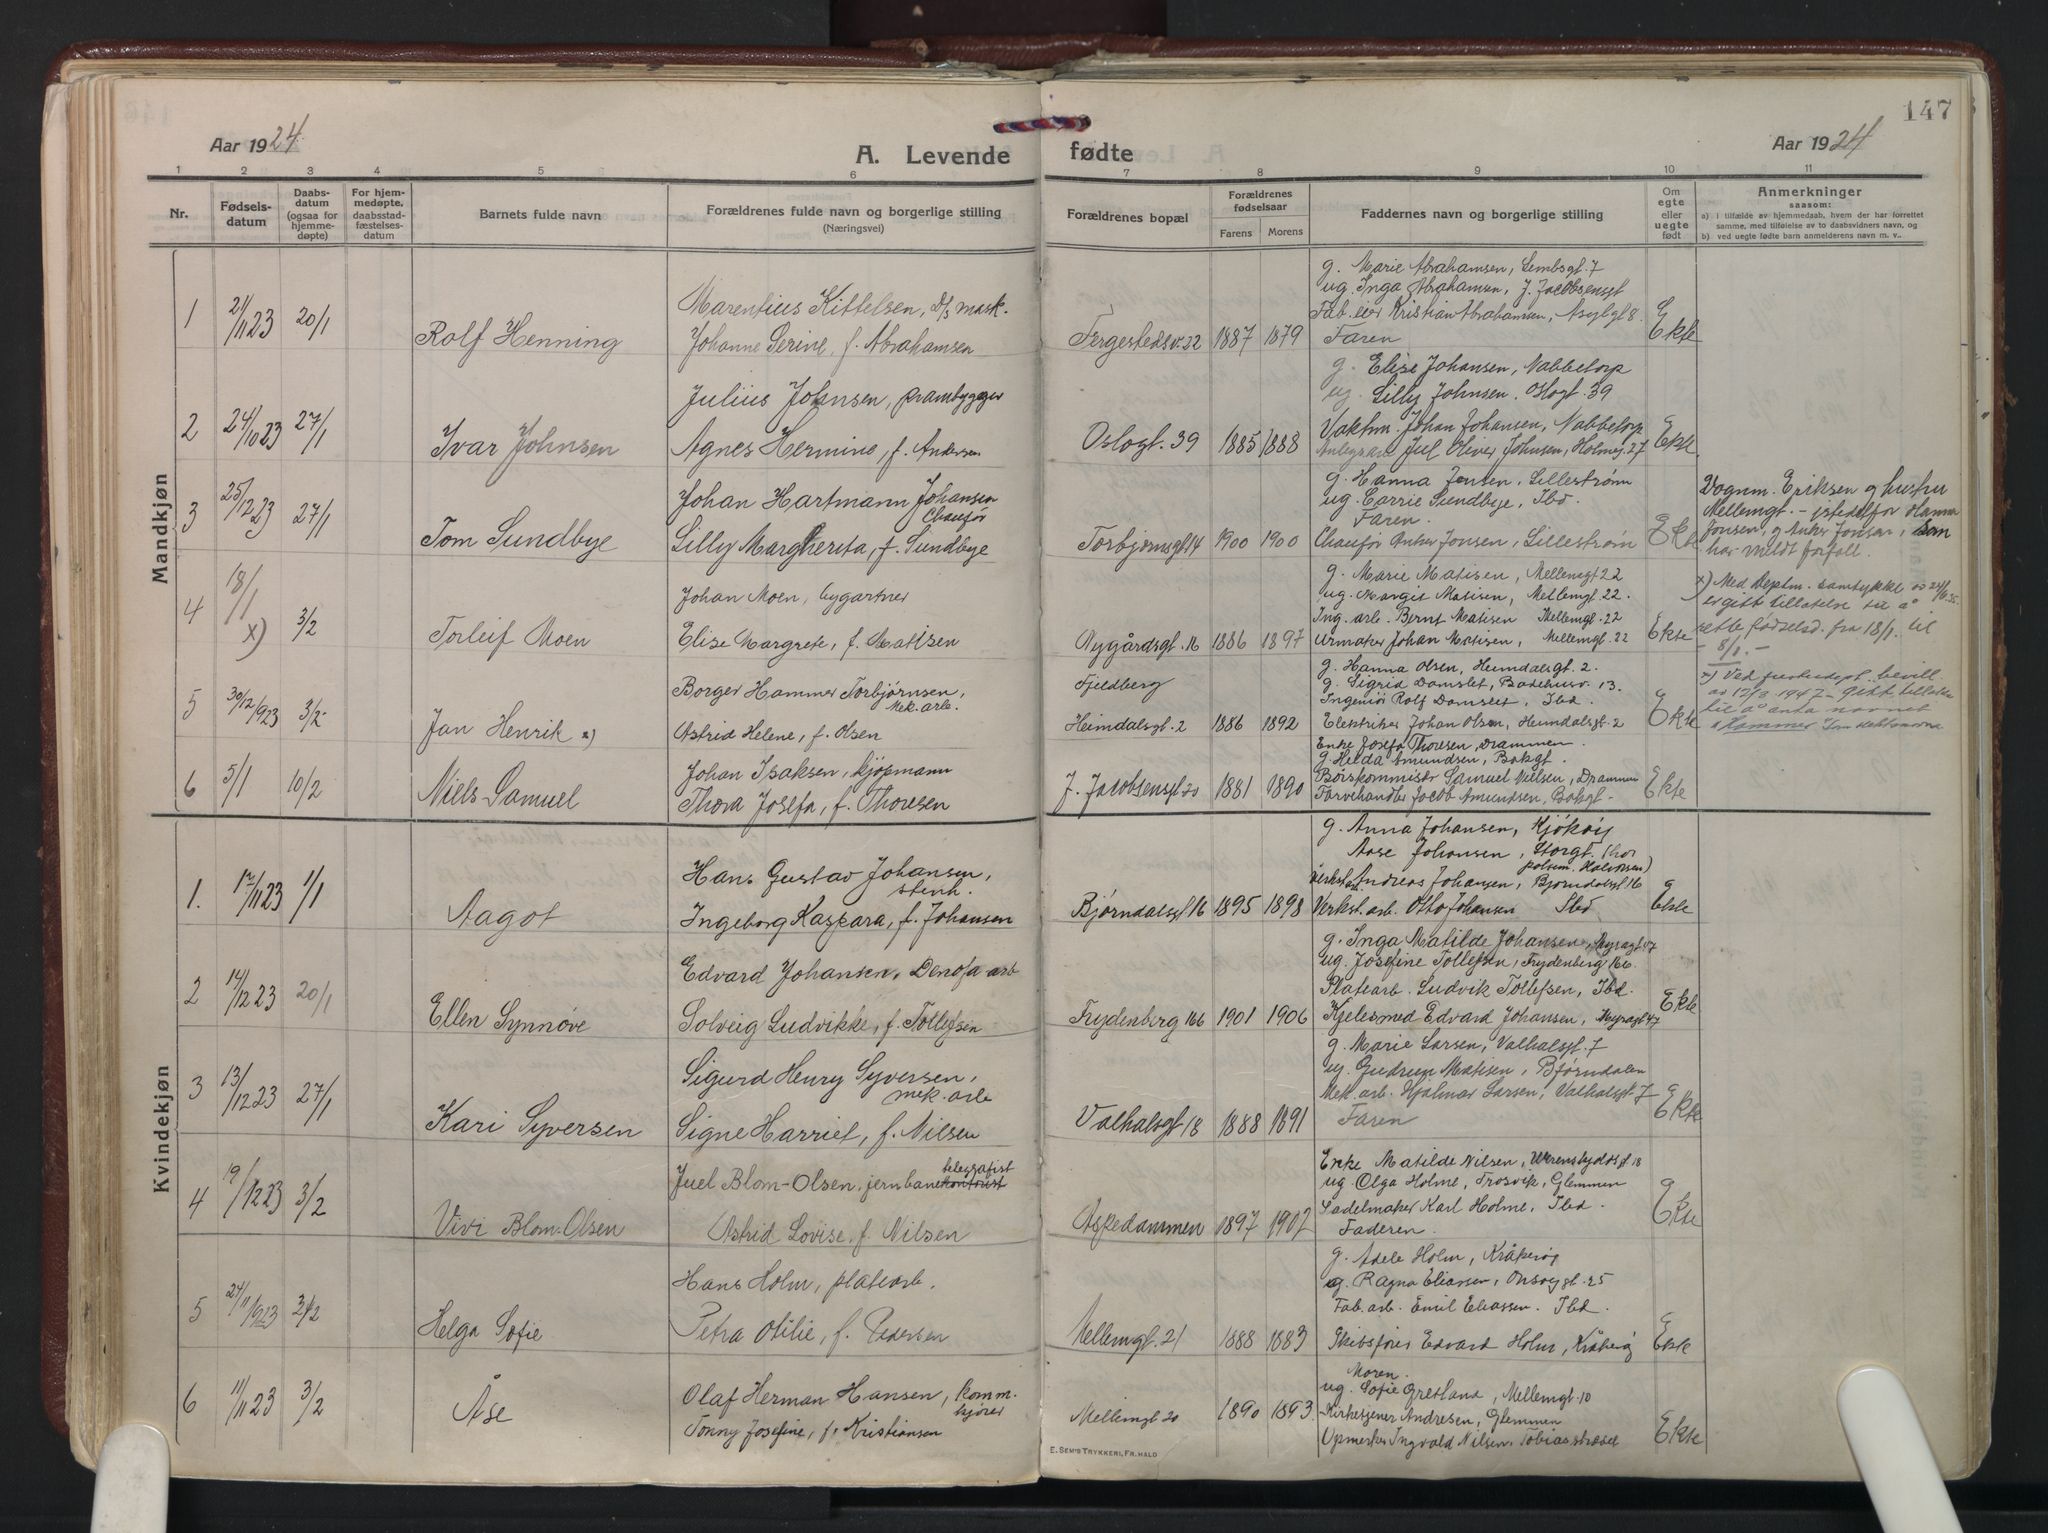 147
Aar 1924
A. Levende fødte
Aar 1924
1 2 3 4 5 6 7 8 9 10 11
Nr.
Fødsels-
datum
Daabs-
datum
(ogsaa for
hjemme-
døpte)
For hjem-
medøpte,
daabsstad-
fæstelses-
datum
Barnets fulde navn
Forældrenes fulde navn og borgerlige stilling
(Næringsvei)
Forældrenes bopæl
Forældrenes
fødselsaar
Farens Morens
Faddernes navn og borgerlige stilling
Om
egte
eller
uegte
født
Anmerkninger
saasom:
a) i tilfælde av hjemmedaab, hvem der har forrettet
samme, med tilføielse av to daabsvidners navn, og
b) ved uegte fødte barn anmelderens navn m. v..
Mandkjøn
1 21/11 23 20/1
Rolf Henning
Marentius Kittelsen, D/s mask.
Johanne Serine, f. Abrahamsen
Fergestedsv. 22 1887 1879
g. Marie Abrahamsen, Lembsgt. 7
ug. Inga Abrahamsen, J. Jacobsensgt
Fab. eier Kristian Abrahamsen, Asylgt 8.
Faren
Ekte
2 24/10 23 27/1
Ivar Johnsen
Julius Johnsen, prambygger
Agnes Hermine, f. Andersen
Oslogt. 39 1885 1888
g. Elise Johansen, Nabbetorp
ug. Lilly Johnsen, Oslogt. 39
Vaktm. Johan Johansen, Nabbetorp
Jul Oliver Johnsen, Holmeg. 27
Ekte
3 25/12 23 27/1
Tom Sundbye
Johan Hartmann Johansen
Chaufør
Lilly Margherita, f. Sundbye
Torbjørnsgt 14 1900 1900
g. Hanna Jonsen, Lillestrøm
ug. Carrie Sundbye, Ibd.
Faren.
Chaufør Anker Jonsen, Lillestrøm
Ekte
Vognm. Eriksen og hustru
Mellemgt. – istedetfor Hanna
Jonsen, og Anker Jonsen, som
har meldt forfall.
4 18/1 x) 3/2
Torleif Moen
Johan Moen, bygartner
Elise Margrete, f. Matisen
Nygårdsgt. 16 1886 1897
g. Marie Matisen, Mellemgt 22
ug. Margit Matisen, Mellemgt 22.
Ing. arb. Bernt Matisen Mellemgt. 22
Urmaker Johan Matisen, Mellemgt. 22
Ekte
x) Med Deptm. samtykke av 24/6 35
er gitt tillatelse til å
rette fødselsd. fra 18/1. til
– 8/1. –
5 30/12 1923 3/2
Jan Henrik x)
Borger Hammer Torbjørnsen,
Mek. arb.
Astrid Helene, f. Olsen
Fjeldberg
Heimdalsgt. 2 1886 1892
g. Hanna Olsen, Heimdalsgt. 2.
g. Sigrid Damslet, Badehusv. 13.
Ingeniør Rolf Damslet, Ibd.
Elektriker Johan Olsen, Heimdalsgt. 2
Ekte
av 12/3 1947 – gitt tillatelse
til å anta navnet
6 5/1 10/2
Niels Samuel
Johan Isaksen, kjøpmann
Thora Josefa, f. Thoresen
J. Jacobsensgt 20 1881 1890
Enke Josefa Thoresen, Drammen.
g. Helda Amundsen, Bakgt.
Børskommisær Samuel Nielsen, Drammen
Farvehandler Jacob Amundsen, Bakgt.
Ekte
Kvindekjøn
1. 17/11 23 1/1
Aagot
Hans Gustav Johansen,
stenh.
Ingeborg Kaspara, f. Johansen
Bjørndalsgt 16 1895 1898
g. Anna Johansen, Kjøkøy
Aase Johansen, Storgt. (hos
Halvorsen)
Andreas Johansen, Bjørndalsgt 16
Verkst. arb. Otto Johansen Ibd
Ekte
2 14/12 23 20/1
Ellen Synnøve
Edvard Johansen, Denofa arb
Solveig Ludvikke, f. Tollefsen
Frydenberg 166 1901 1906
g. Inga Matilde Johansen, Myragt 47
ug. Josefine Tollefsen, Frydenberg 166.
Platearb. Ludvik Tollefsen, Ibd.
Kjelesmed Edvard Johansen, Myragt 47
Ekte
3 13/12 23 27/1
Kari Syversen
Sigurd Henry Syversen,
mek. arb
Signe Harriet, f. Nilsen
Valhalsgt 18 1888 1891
g. Marie Larsen, Valhalsgt. 7
ug. Gudrun Matisen, Bjørndalen
Mek. arb. Hjalmar Larsen, Valhalsgt 7
Faren
Ekte
4 19/12 23 3/2
Vivi Blom-Olsen
Juel Blom-Olsen, jernbanekontorist
telegrafist
Astrid Lovise, f. Nilsen
Aspedammen 1897 1902
Enke Matilde Nilsen, Werenskyoldsgt. 18
ug. Olga Holme, Trosvik, Glemmen
Sadelmaker Karl Holme, Ibd.
Faderen.
Ekte
5 24/11 1923 3/2
Helga Sofie
Hans Holm, platearb.
Petra Otilie, f. Pedersen
Mellemgt. 21 1888 1883
g. Adele Holm, Kråkerøy
ug. Ragna Eliassen, Onsøygt. 25
Fab. arb. Emil Eliassen. Ibd.
Skibsfører Edvard Holm, Kråkerøy
Ekte
6 11/11 23 3/2
Åse
Olaf Herman Hansen, komm.
kjører
Tonny Josefine, f. Kristiansen
Mellemgt 20 1890 1893.
Moren.
ug. Sofie Gretland, Mellemgt. 10
Kirketjener Andresen, Glemmen
Opmerker Ingvald Nilsen, Tobiasstrædet
Ekte
E. SEM'S TRYKKERI, FR.HALD